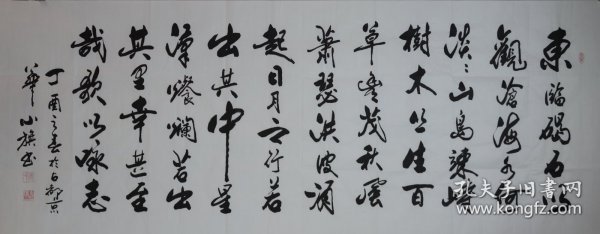 東臨碣石以
觀滄海水何
淡〻山島竦峙
樹木丛生百
草豐茂秋風
蕭瑟洪波涌
起日月之行若
出其中星
漢燦爛若出
其里幸甚至
哉歌以咏志
丁酉之春於
華小旗书
孔夫子旧书网
www.kongfz.com